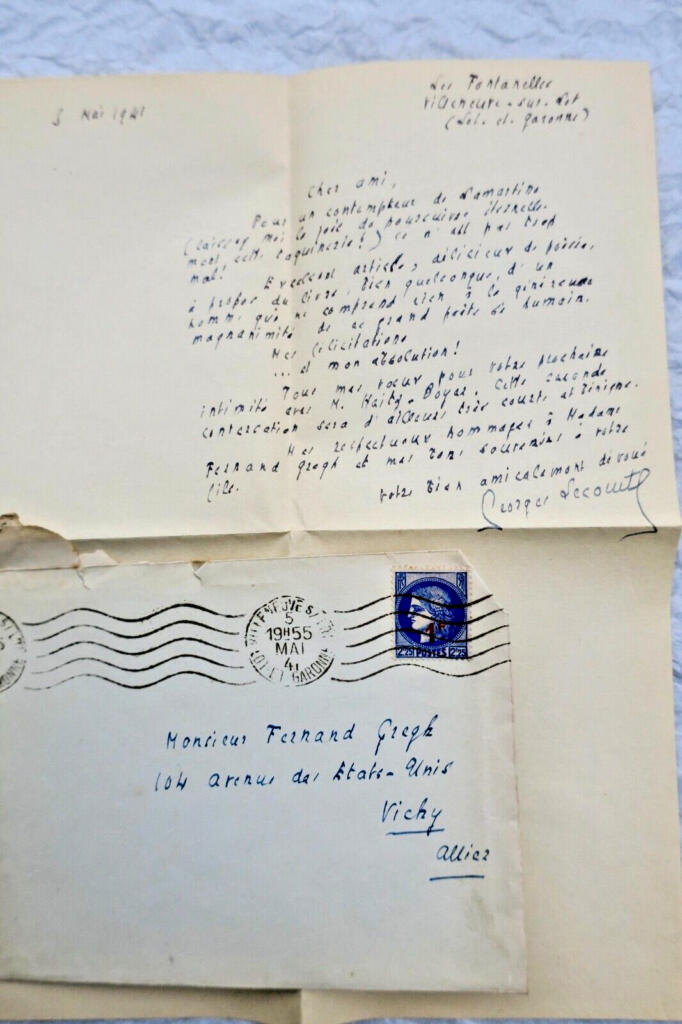 5 Mai 1941
Les Fontanelles
Villeneuve-sur-Lot
(Lot-et-Garonne)
Cher ami,
Pour un contempteur de Lamartine
(laissez moi la joie de poursuivre éternelle-
ment cette taquinerie!) ce n'est pas trop
mal!
Excellent article, délicieux de poésie,
à propos du livre, bien quelconque, d'un
homme qui ne comprend rien à la généreuse
magnanimité de ce grand poète si humain.
Mes félicitations
... et mon absolution!
Tous mes vœux pour votre prochaine
intimité avec M.
sera d'ailleurs très courte et bénigne.
Mes respectueux hommages à Madame
Fernand Gregh et mes bons souvenirs à votre
fils.
Votre bien amicalement dévoué
Georges Lecomte
VILLENEUVE S
5
19H55
MAI
41
LOT-ET-GARONNE
1F
2F25 POSTES 2F25
Monsieur Fernand Gregh
104 avenue des Etats-Unis
Vichy
Allier